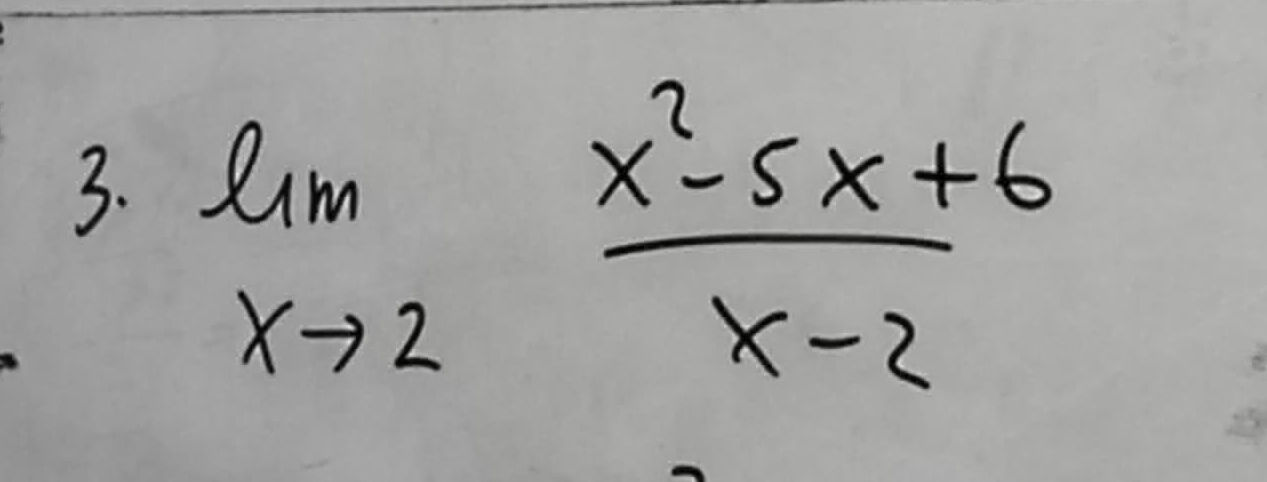 3. lim x→2 (x²-5x+6)/(x-2)